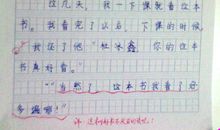 这几天，我一下课就看这本
书。我看完了以后，下课
我还了他"杜冰鑫，你的这本
书真好看。"
"当然了，这本书我看了好
多遍哪！"